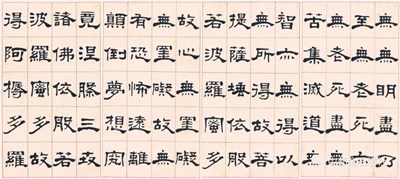 無無明盡乃
至無老死亦
無老死盡無
苦集滅道無
智亦無得以
無所得故菩
提薩埵依般
若波羅蜜多
故心無罣礙
無罣礙故無
有恐怖遠離
顛倒夢想究
竟涅槃三世
諸佛依般若
波羅蜜多故
得阿耨多羅